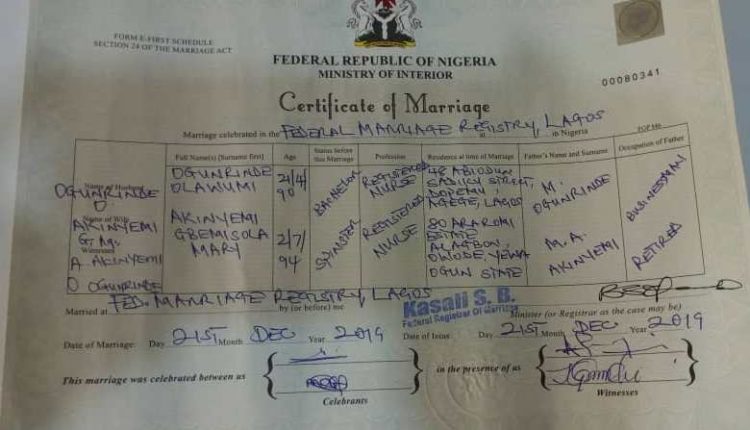 FORM E-FIRST SCHEDULE
SECTION 24 OF THE MARRIAGE ACT
FEDERAL REPUBLIC OF NIGERIA
MINISTRY OF INTERIOR
00080341
Certificate of Marriage
Marriage celebrated in the FEDERAL MARRIAGE REGISTRY, LAGOS in Nigeria
Full Name(s) (Surname first) Age Status before this Marriage Profession Residence at time of Marriage Father's Name and Surname Occupation of Father
Name of Husband
OGUNRINDE O.
OGUNRINDE OLAWUMI
21/4/90
BACHELOR
REGISTERED NURSE
48 ABIODUN SADIKU STREET, DOPEMU AGEGE, LAGOS
M. OGUNRINDE
BUSINESSMAN
Name of Wife
AKINYEMI G.
AKINYEMI GBEMISOLA MARY
2/7/94
SPINSTER
REGISTERED NURSE
80 ARAROMI ESTATE ALAGBON, OWODE, YEWA OGUN STATE
M.A. AKINYEMI
RETIRED
Witnesses
A. AKINYEMI
O OGUNRINDE
Married at FED. MARRIAGE REGISTRY, LAGOS by (or before) me
Kasali S. B.
Federal Registrar Of Marriage
Minister (or Registrar as the case may be)
Date of Marriage: Day 21ST Month DEC Year 2019 Date of Issue: Day 21ST Month DEC Year 2019
This marriage was celebrated between us
in the presence of us
Celebrants
Witnesses